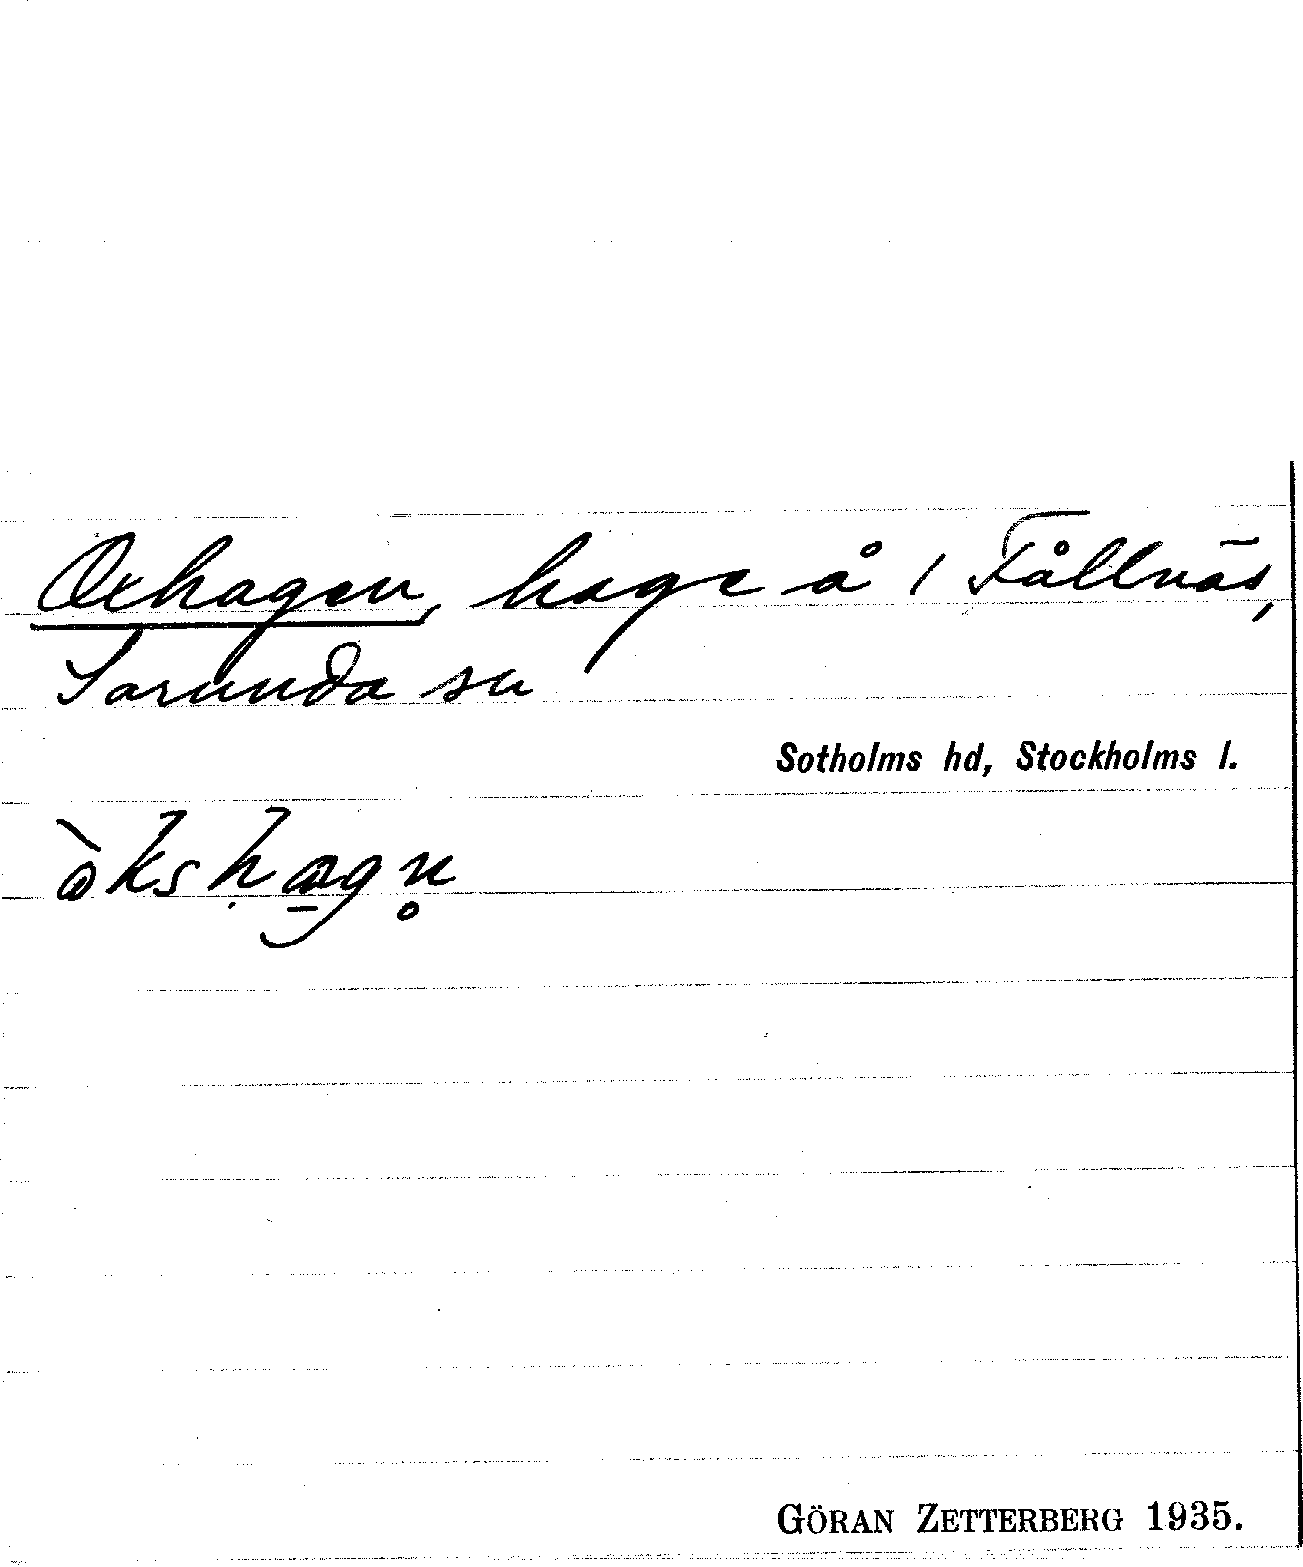 Oxhagen, hage å 1 Fållnäs,
Sorunda sn
Sotholms hd, Stockholms l.
GÖRAN ZETTERBERG 1935.